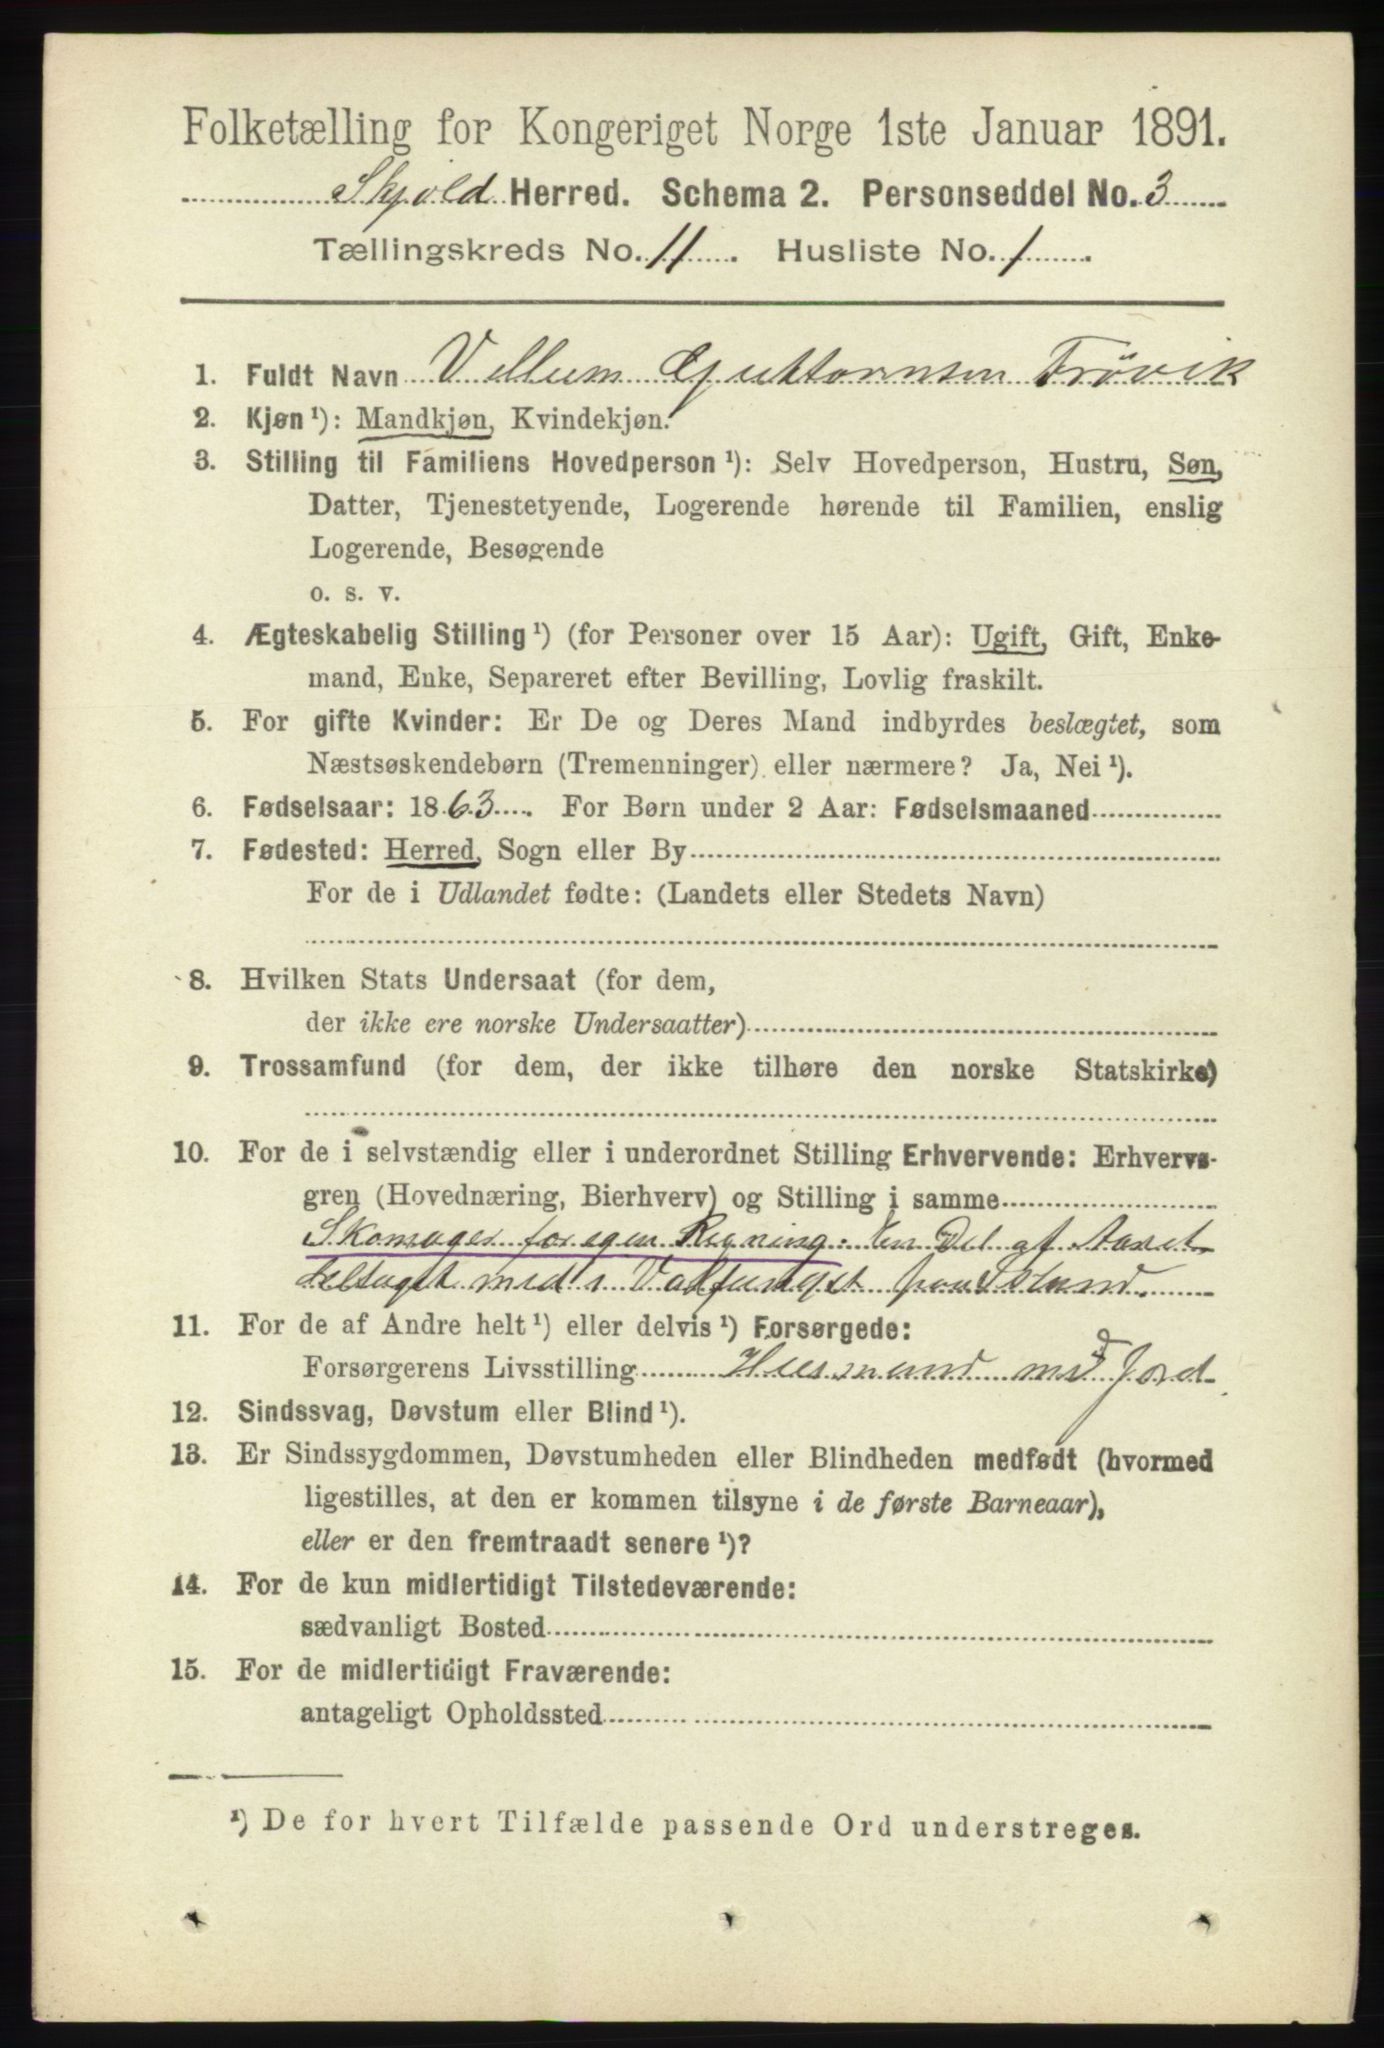 Folketælling for Kongeriget Norge 1ste Januar 1891.
Skjold Herred. Schema 2. Personseddel No. 3
Tællingskreds No. 11. Husliste No. 1.
1. Fuldt Navn Villum Guttormsen Frövik
2. Kjøn ¹): Mandkjøn, Kvindekjøn.
3. Stilling til Familiens Hovedperson ¹): Selv Hovedperson, Hustru, Søn,
Datter, Tjenestetyende, Logerende hørende til Familien, enslig
Logerende, Besøgende
o. s. v.
4. Ægteskabelig Stilling ¹) (for Personer over 15 Aar): Ugift, Gift, Enke-
mand, Enke, Separeret efter Bevilling, Lovlig fraskilt.
5. For gifte Kvinder: Er De og Deres Mand indbyrdes beslægtet, som
Næstsøskendebørn (Tremenninger) eller nærmere? Ja, Nei ¹).
6. Fødselsaar: 1863. For Børn under 2 Aar: Fødselsmaaned
7. Fødested: Herred, Sogn eller By
For de i Udlandet fødte: (Landets eller Stedets Navn)
8. Hvilken Stats Undersaat (for dem,
der ikke ere norske Undersaatter)
9. Trossamfund (for dem, der ikke tilhøre den norske Statskirke)
10. For de i selvstændig eller i underordnet Stilling Erhvervende: Erhvervs-
gren (Hovednæring, Bierhverv) og Stilling i samme
Skomager for egen Regning. En Del af Aaret
deltaget med i
11. For de af Andre helt ¹) eller delvis ¹) Forsørgede:
Forsørgerens Livsstilling Husmand med Jord
12. Sindssvag, Døvstum eller Blind ¹).
13. Er Sindssygdommen, Døvstumheden eller Blindheden medfødt (hvormed
ligestilles, at den er kommen tilsyne i de første Barneaar),
eller er den fremtraadt senere ¹)?
14. For de kun midlertidigt Tilstedeværende:
sædvanligt Bosted
15. For de midlertidigt Fraværende:
antageligt Opholdssted
¹) De for hvert Tilfælde passende Ord understreges.